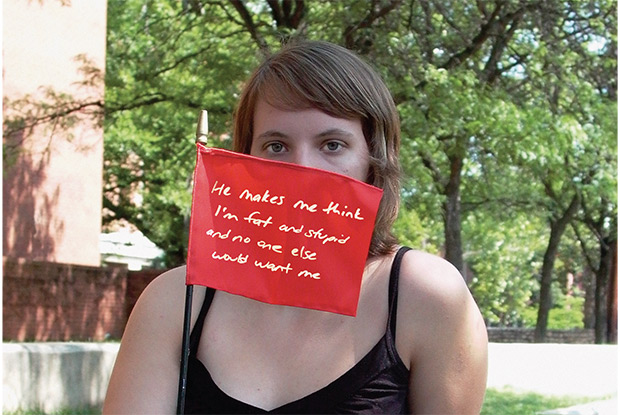 He makes me think
I'm fat and stupid
and no one else
would want me